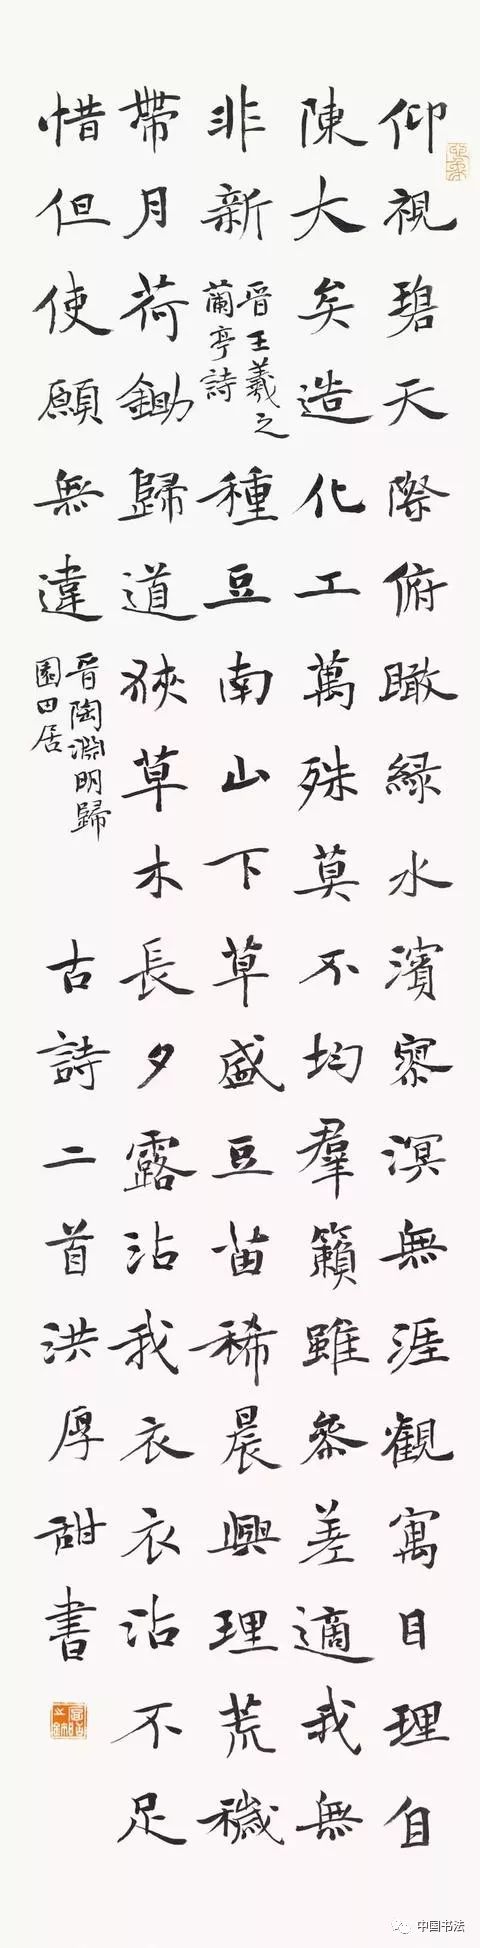 仰視碧天際俯瞰緑水濱寥溟無涯觀寓目理自
陳大矣造化工萬殊莫不均羣籟雖參差適我無
非新
晉王羲之
蘭亭詩
種豆南山下草盛豆苗稀晨興理荒穢
帶月荷鋤歸道狹草木長夕露沾我衣衣沾不足
惜但使願無違
晉陶淵明歸
園田居
古詩二首洪厚甜書
中国书法